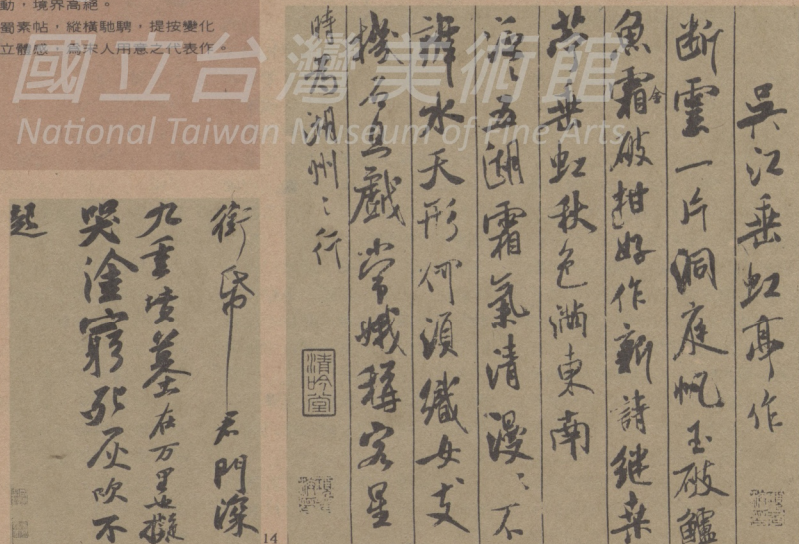 動，境界高絕。
蜀素帖，縱橫馳騁，提按變化
立體感，為宋人用意之代表作。
國立台灣美術館
National Taiwan Museum of Fine Arts
吳江垂虹亭作
断雲一片洞庭帆玉破鱸
魚霜金破柑好作新詩継桑
苧垂虹秋色滿東南
泛〻五湖霜氣清漫〻不
辨水天形何須織女支
機石且戲常娥稱客星
時為湖州之行
清吟堂
銜帋君門深
九重墳墓在万里也擬
哭塗窮死灰吹不
起
14